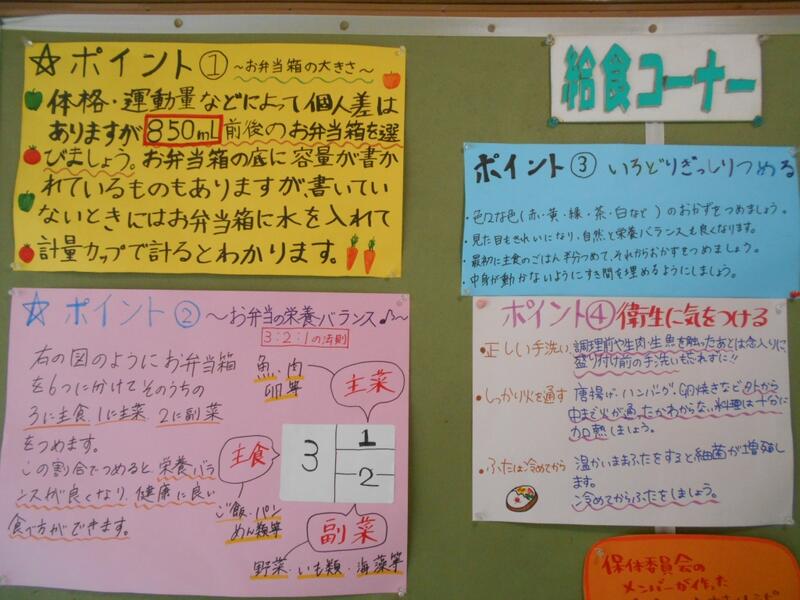 ☆ポイント① ～お弁当箱の大きさ～
体格・運動量などによって個人差は
ありますが850mL前後のお弁当箱を選
びましょう。お弁当箱の底に容量が書か
れているものもありますが、書いてい
ないときにはお弁当箱に水を入れて
計量カップで計るとわかります。
☆ポイント② ～お弁当の栄養バランス♪～
3:2:1の法則
右の図のようにお弁当箱
を6つに分けてそのうちの
3に主食、1に主菜、2に副菜
をつめます。
この割合でつめると栄養バラ
ンスが良くなり、健康に良い
食べ方ができます。
魚・肉
卵等
主菜
主食
3
1
2
ご飯・パン
めん類等
副菜
野菜・いも類・海藻等
給食コーナー
ポイント③ いろどりぎっしりつめる
・色々な色(赤・黄・緑・茶・白など)のおかずをつめましょう。
・見た目もきれいになり、自然と栄養バランスも良くなります。
・最初に主食のごはん半分つめて、それからおかずをつめましょう。
・中身が動かないようにすき間を埋めるようにしましょう。
ポイント④衛生に気をつける
・正しい手洗い 調理前や生肉・生魚を触ったあとは念入りに。
盛り付け前の手洗いも忘れずに!!
・しっかり火を通す 唐揚げ・ハンバーグ・卵焼きなど外から
中まで火が通ったかわからない料理は十分に
加熱しましょう。
・ふたは冷めてから 温かいままふたをすると細菌が増殖し
ます。
冷めてからふたをしましょう。
保体委員会の
メンバーが作った